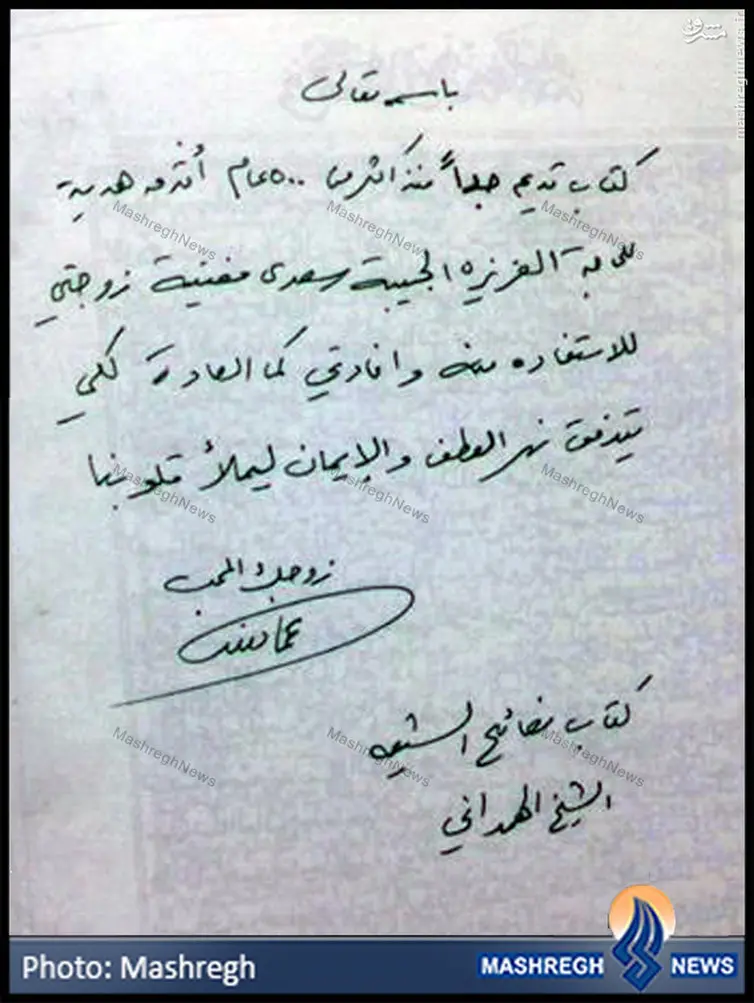 مشرق
mashreghnews.ir
باسمه تعالى
كتاب قديم جداً منذ اكثر من ٥٠٠ عام أقدمه هدية
MashreghNews MashreghNews MashreghNews
للحاجة العزيزه الحبيبة سعدى مغنية زوجتي
للاستفاده منه وافادتي كما العادة لكي
يتدفق نهر العطف والإيمان ليملأ قلوبنا
MashreghNews MashreghNews MashreghNews
زوجك المحب
كتاب الشيعه
MashreghNews MashreghNews MashreghNews
الشيخ الهمداني
Photo: Mashregh
MASHREGH NEWS